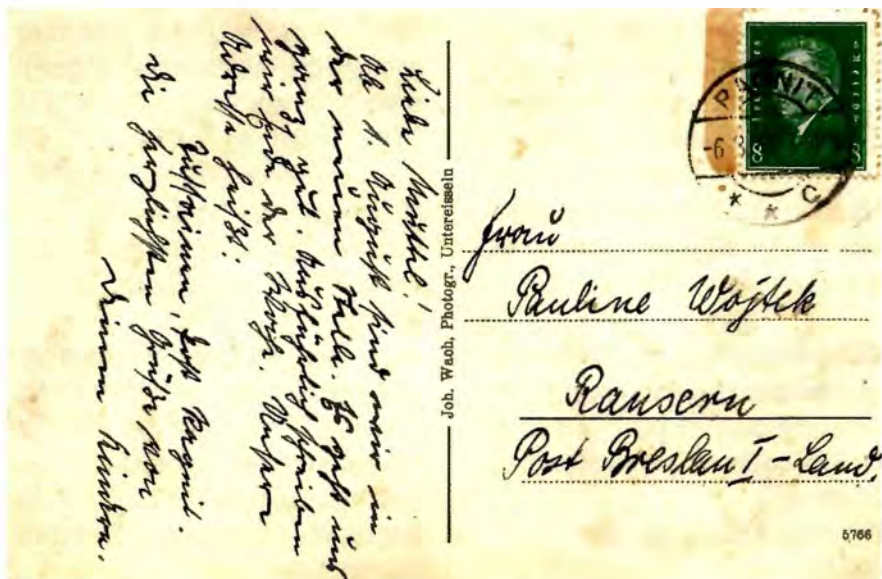 Liebe Muttel!
Ab 1. August sind wir in
der neuen Stelle. Es geht uns
ganz gut. Ausführlich schreiben
wir Ende der Woche. Unsere
Adresse heißt:
Tussainen, Post Ragnit.
Die herzlichsten Grüße von
Deinen Kindern.
Joh. Wach, Photogr., Untereisseln
RAGNIT
C
8 8
Frau
Pauline Wojtek
Ransern
Post Breslau I - Land.
5766